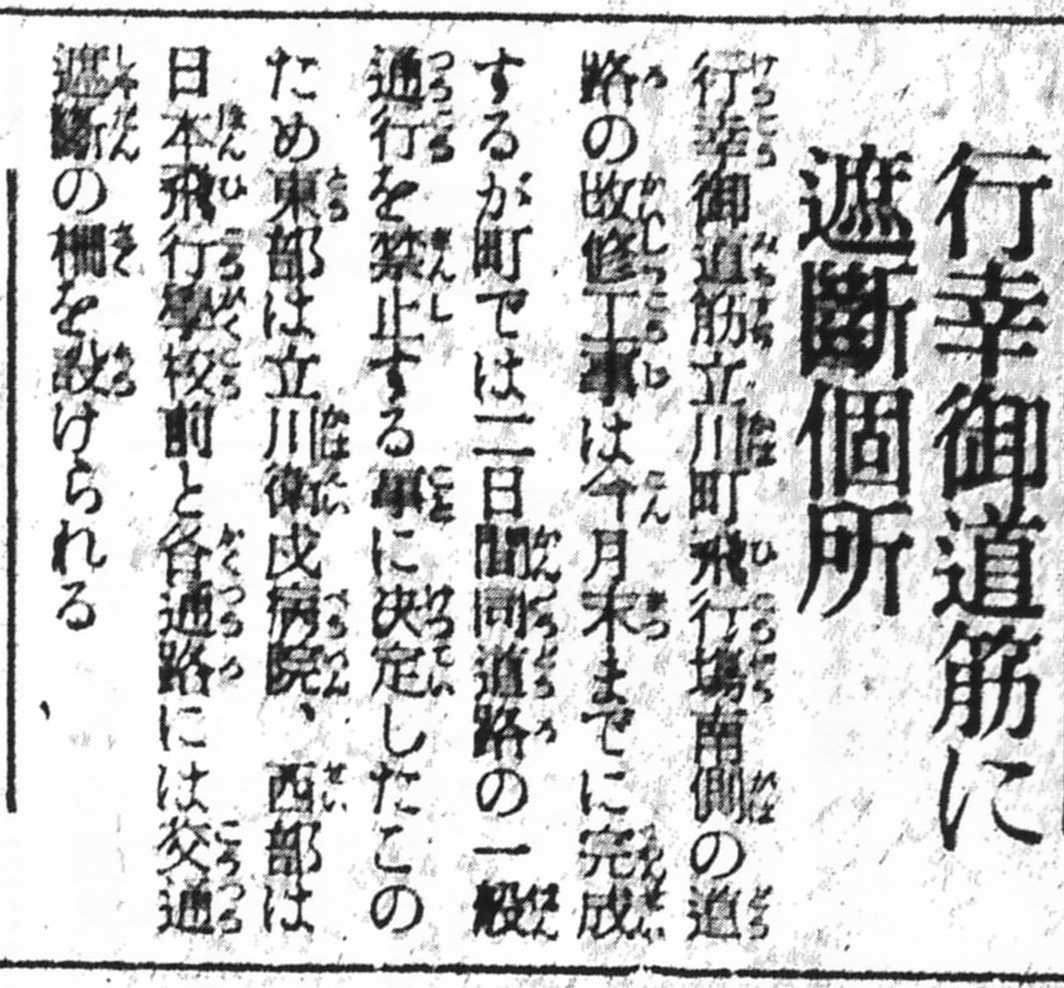 行幸御道筋に
遮斷個所
行幸御道筋立川町飛行場南側の道
路の改修工事は今月末までに完成
するが町では二日間同道路の一般
通行を禁止する事に決定したこの
ため東部は立川衛戍病院、西部は
日本飛行學校前と各通路には交通
遮斷の柵を設けられる